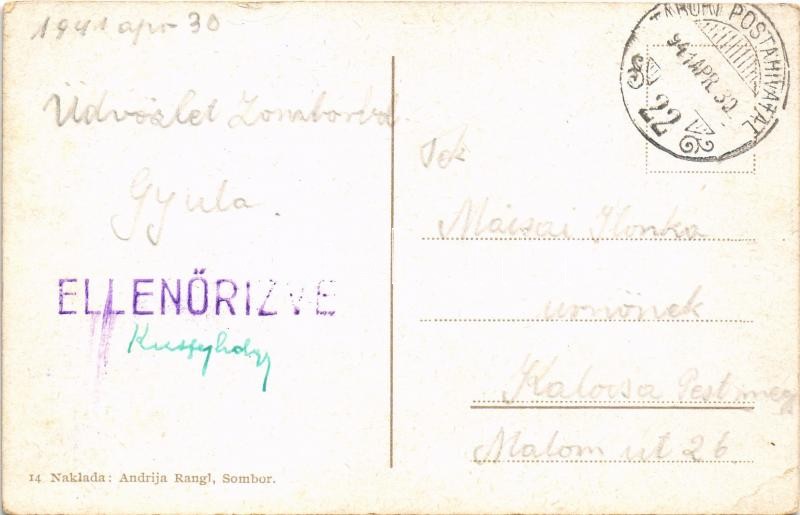 1941 apr 30
Üdvözlet Zomborból
Gyula
ELLENŐRIZVE
14 Naklada: Andrija Rangl, Sombor.
TÁBORI POSTAHIVATAL
941 APR. 30.
22
Tek
Mácsai Ilonka
urnőnek
Kalocsa Pest meg
Malom út 26.